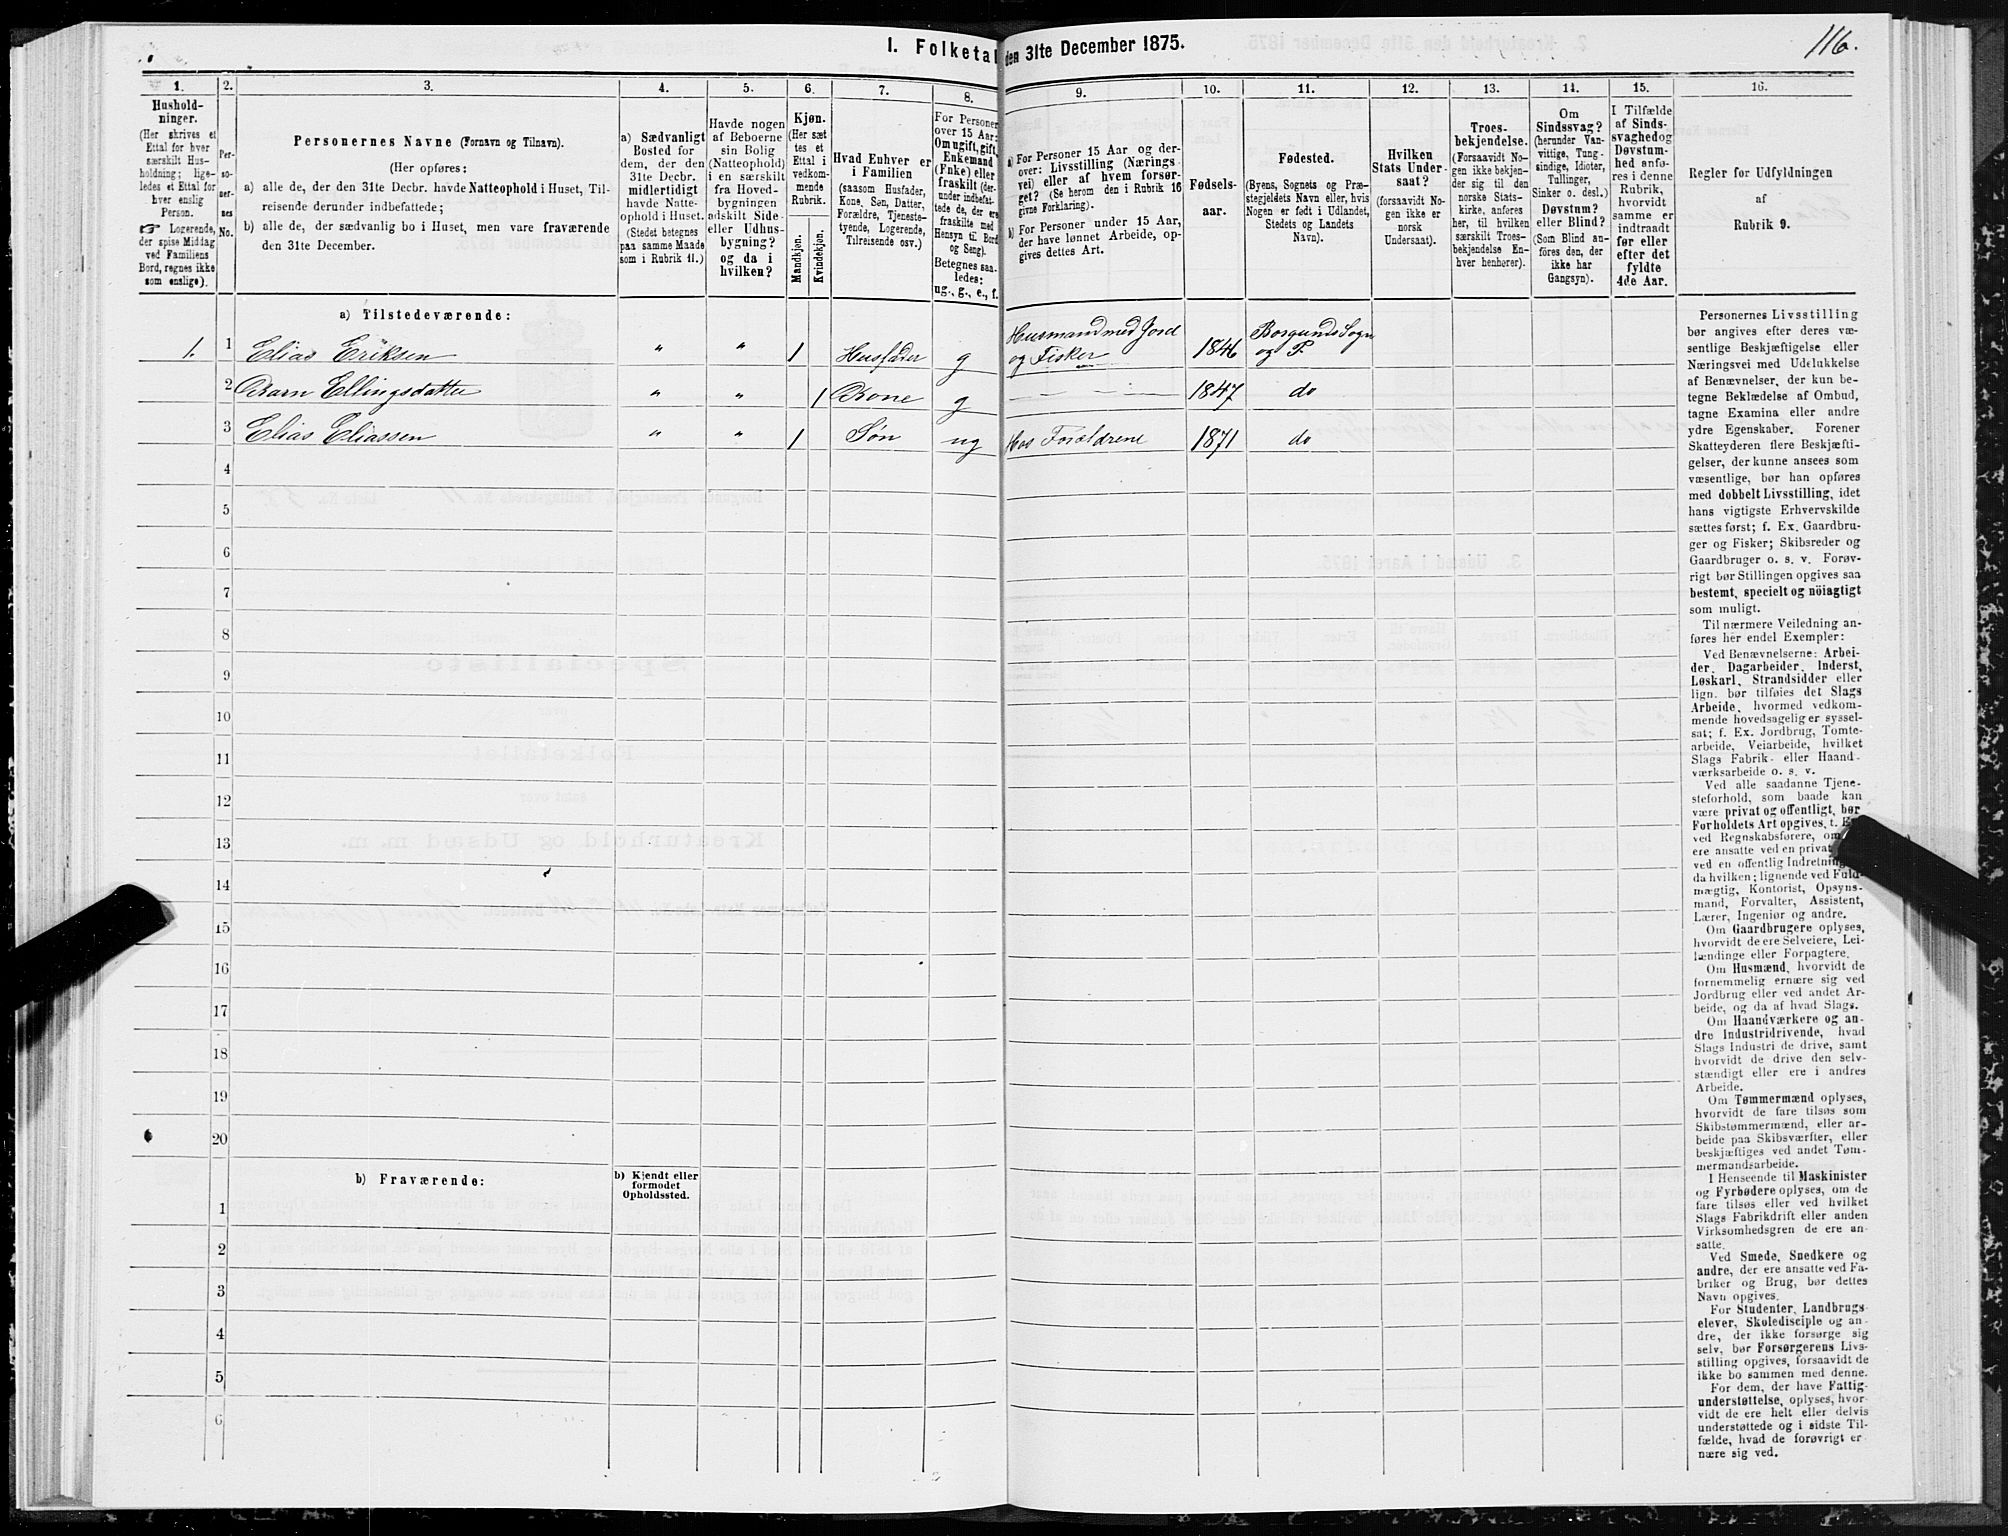 116.
I. Folketal den 31te December 1875.
1. 2. 3. 4. 5. 6. 7. 8. 9. 10. 11. 12. 13. 14. 15. 16.
Hushold-
ninger.
(Her skrives et
Ettal for hver
særskilt Hus-
holdning; lige-
ledes et Ettal for
hver enslig
Person.
☞ Logerende,
der spise Middag
ved Familiens
Bord, regnes ikke
som enslige).
Per-
so-
ner-
nes
No.
Personernes Navne (Fornavn og Tilnavn).
(Her opføres:
a) alle de, der den 31te Decbr. havde Natteophold i Huset, Til-
reisende derunder indbefattede;
b) alle de, der sædvanlig bo i Huset, men vare fraværende
den 31te December.
a) Sædvanligt
Bosted for
dem, der den
31te Decbr.
midlertidigt
havde Natte-
ophold i Huset.
(Stedet betegnes
paa samme Maade
som i Rubrik 11.)
Havde nogen
af Beboerne
sin Bolig
(Natteophold)
i en særskilt
fra Hoved-
bygningen
adskilt Side-
eller Udhus-
bygning?
og da i
hvilken?
Kjøn.
(Her sæt
tes et
Ettal i
vedkom-
mende
Rubrik.
Mandkjøn.
Kvindekjøn.
Hvad Enhver er
i Familien
(saasom Husfader,
Kone, Søn, Datter,
Forældre, Tjeneste-
tyende, Logerende,
Tilreisende osv.)
For Personer
over 15 Aar:
Om ugift, gift,
Enkemand
(Enke) eller
fraskilt (der-
under indbefat-
tede de, der ere
fraskilte med
Hensyn til Bord
og Seng).
Betegnes saa-
ledes:
ug., g., e., f.
a) For Personer 15 Aar og der-
over: Livsstilling (Nærings
vei) eller af hvem forsør-
get? (Se herom den i Rubrik 16
givne Forklaring).
b) For Personer under 15 Aar,
der have lønnet Arbeide, op-
gives dettes Art.
Fødsels-
aar.
Fødested.
(Byens, Sognets og Præ-
stegjeldets Navn eller, hvis
Nogen er født i Udlandet,
Stedets og Landets
Navn).
Hvilken
Stats Under-
saat?
(forsaavidt No-
gen ikke er
norsk
Undersaat).
Troes-
bekjendelse.
(Forsaavidt No-
gen ikke bekjen-
der sig til den
norske Stats-
kirke, anføres
her, til hvilken
særskilt Troes-
bekjendelse En-
hver henhører).
Om
Sindssvag?
(herunder Van-
vittige, Tung-
sindige, Idioter,
Tullinger,
Sinker o. desl.)
Døvstum?
eller Blind?
(Som Blind an-
føres den, der
ikke har
Gangsyn).
I Tilfælde
af Sinds-
svaghed og
Døvstum-
hed anfø-
res i denne
Rubrik,
hvorvidt
samme er
indtraadt
før eller
efter det
fyldte
4de Aar.
Regler for Udfyldningen
af
Rubrik 9.
a) Tilstedeværende:
1. 1 Elias Eriksen " " 1 Husfader g Husmand med Jord og Fisker 1846 Borgunds Sogn og P.
2 Barn Ellingsdatter " " 1 Kone g — 1847 do
3 Elias Eliassen " " 1 Søn ug Hos Forældrene 1871 do
4
5
6
7
8
9
10
11
12
13
14
15
16
17
18
19
20
b) Fraværende:
b) Kjendt eller
formodet
Opholdssted.
1
2
3
4
5
6
Personernes Livsstilling
bør angives efter deres væ-
sentlige Beskjæftigelse eller
Næringsvei med Udelukkelse
af Benævnelser, der kun be-
tegne Beklædelse af Ombud,
tagne Examina eller andre
ydre Egenskaber. Forener
Skatteyderen flere Beskjæfti-
gelser, der kunne ansees som
væsentlige, bør han opføres
med dobbelt Livsstilling, idet
hans vigtigste Erhvervskilde
sættes først; f. Ex. Gaardbru-
ger og Fisker; Skibsreder og
Gaardbruger o. s. v. Forøv-
rigt bør Stillingen opgives saa
bestemt, specielt og nöiagtigt
som muligt.
Til nærmere Veiledning an-
føres her endel Exempler:
Ved Benævnelserne: Arbei-
der, Dagarbeider, Inderst,
Løskarl, Strandsidder eller
lign. bør tilføies det Slags
Arbeide, hvormed vedkom-
mende hovedsagelig er syssel-
sat; f. Ex. Jordbrug, Tomte-
arbeide, Veiarbeide, hvilket
Slags Fabrik- eller Haand-
værksarbeide o. s. v.
Ved alle saadanne Tjene-
steforhold, som baade kan
være privat og offentligt, bør
Forholdets Art opgives, t.
ved Regnskabsførere, om
ere ansatte ved en privat
ved en offentlig Indretning
da hvilken; lignende ved Fuld-
mægtig, Kontorist, Opsyns-
mand, Forvalter, Assistent,
Lærer, Ingeniør og andre.
Om Gaardbrugere oplyses,
hvorvidt de ere Selveiere, Lei-
lændinge eller Forpagtere.
Om Husmænd, hvorvidt de
fornemmelig ernære sig ved
Jordbrug eller ved andet Ar-
beide, og da af hvad Slags.
Om Haandværkere og an-
dre Industridrivende, hvad
Slags Industri de drive, samt
hvorvidt de drive den selv-
stændigt eller ere i andres
Arbeide.
Om Tømmermænd oplyses,
hvorvidt de fare tilsøs som
Skibstømmermænd, eller ar-
beide paa Skibsværfter, eller
beskjæftiges ved andet Tøm-
mermandsarbeide.
I Henseende til Maskinister
og Fyrbødere oplyses, om de
fare tilsøs eller ved hvilket
Slags Fabrikdrift eller anden
Virksomhedsgren de ere an-
satte.
Ved Smede, Snedkere og
andre, der ere ansatte ved Fa-
briker og Brug, bør dettes
Navn opgives.
For Studenter, Landbrugs-
elever, Skoledisciple og an-
dre, der ikke forsørge sig
selv, bør Forsørgerens Livs-
stilling opgives, forsaavidt de
ikke bo sammen med denne.
For dem, der have Fattig-
understøttelse, oplyses, hvor-
vidt de ere helt eller delvis
understøttede og i sidste Til-
fælde, hvad de forøvrigt er-
nære sig ved.